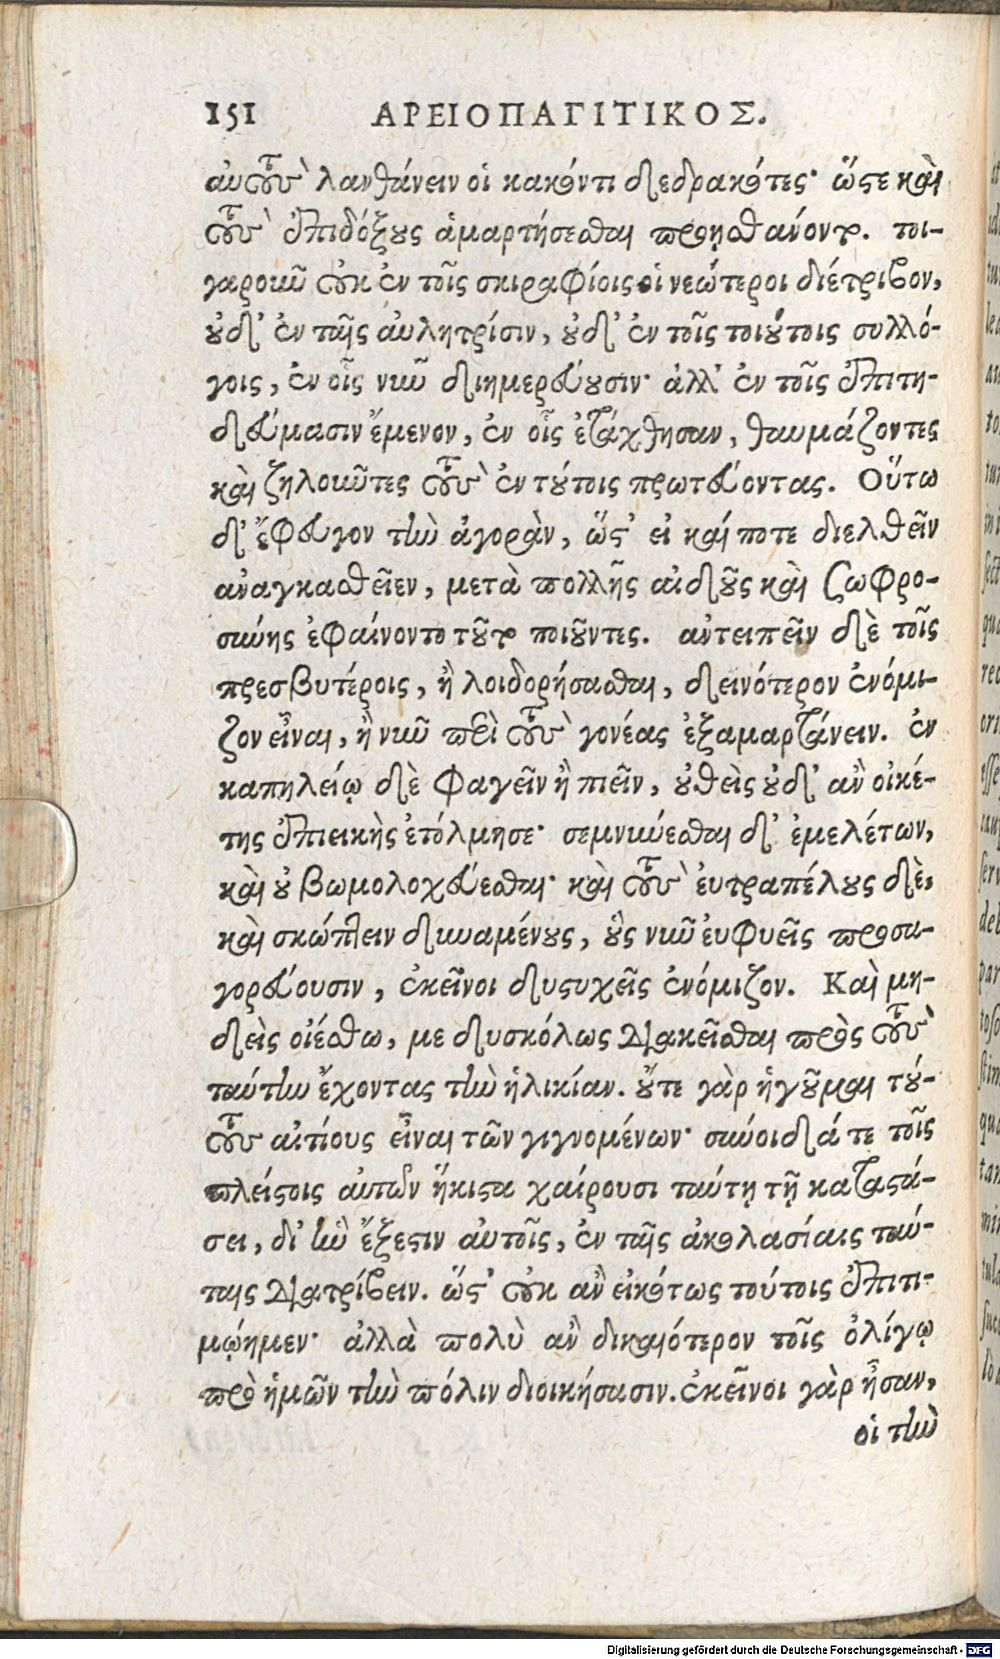 151 ΑΡΕΙΟΠΑΓΙΤΙΚΟΣ.
αὐτοὺς λανθάνειν οἱ κακόν τι δεδρακότες· ὥστε καὶ
τοὺς ἐπιδόξους ἁμαρτήσεσθαι προῃσθάνοντο. τοι-
γαροῦν οὐκ ἐν τοῖς σκιραφίοις οἱ νεώτεροι διέτριβον,
οὐδ' ἐν ταῖς αὐλητρίσιν, οὐδ' ἐν τοῖς τοιούτοις συλλό-
γοις, ἐν οἷς νῦν διημερεύουσιν· ἀλλ' ἐν τοῖς ἐπιτη-
δεύμασιν ἔμενον, ἐν οἷς ἐτάχθησαν, θαυμάζοντες
καὶ ζηλοῦντες τοὺς ἐν τούτοις πρωτεύοντας. Οὕτω
δ' ἔφευγον τὴν ἀγορὰν, ὥστ' εἰ καί ποτε διελθεῖν
ἀναγκασθεῖεν, μετὰ πολλῆς αἰδοῦς καὶ σωφρο-
σύνης ἐφαίνοντο τοῦτο ποιοῦντες. ἀντειπεῖν δὲ τοῖς
πρεσβυτέροις, ἢ λοιδορήσασθαι, δεινότερον ἐνόμι-
ζον εἶναι, ἢ νῦν περὶ τοὺς γονέας ἐξαμαρτάνειν. ἐν
καπηλείῳ δὲ φαγεῖν ἢ πιεῖν, οὐθεὶς οὐδ' ἂν οἰκέ-
της ἐπιεικὴς ἐτόλμησε· σεμνύνεσθαι δ' ἐμελέτων,
καὶ οὐ βωμολοχεύεσθαι· καὶ τοὺς εὐτραπέλους δὲ,
καὶ σκώπτειν δυναμένους, οὓς νῦν εὐφυεῖς προσα-
γορεύουσιν, ἐκεῖνοι δυστυχεῖς ἐνόμιζον. Καὶ μη-
δεὶς οἰέσθω, με δυσκόλως διακεῖσθαι πρὸς τοὺς
ταύτην ἔχοντας τὴν ἡλικίαν. οὔτε γὰρ ἡγοῦμαι τού-
τους αἰτίους εἶναι τῶν γιγνομένων· σύνοιδά τε τοῖς
πλείστοις αὐτῶν ἥκιστα χαίρουσι ταύτῃ τῇ καταστά-
σει, δι' ἣν ἔξεστιν αὐτοῖς, ἐν ταῖς ἀκολασίαις ταύ-
ταις διατρίβειν. ὥστ' οὐκ ἂν εἰκότως τούτοις ἐπιτι-
μῴημεν· ἀλλὰ πολὺ ἂν δικαιότερον τοῖς ὀλίγῳ
πρὸ ἡμῶν τὴν πόλιν διοικήσασιν. ἐκεῖνοι γὰρ ἦσαν,
οἱ τὴν
Digitalisierung gefördert durch die Deutsche Forschungsgemeinschaft - DFG